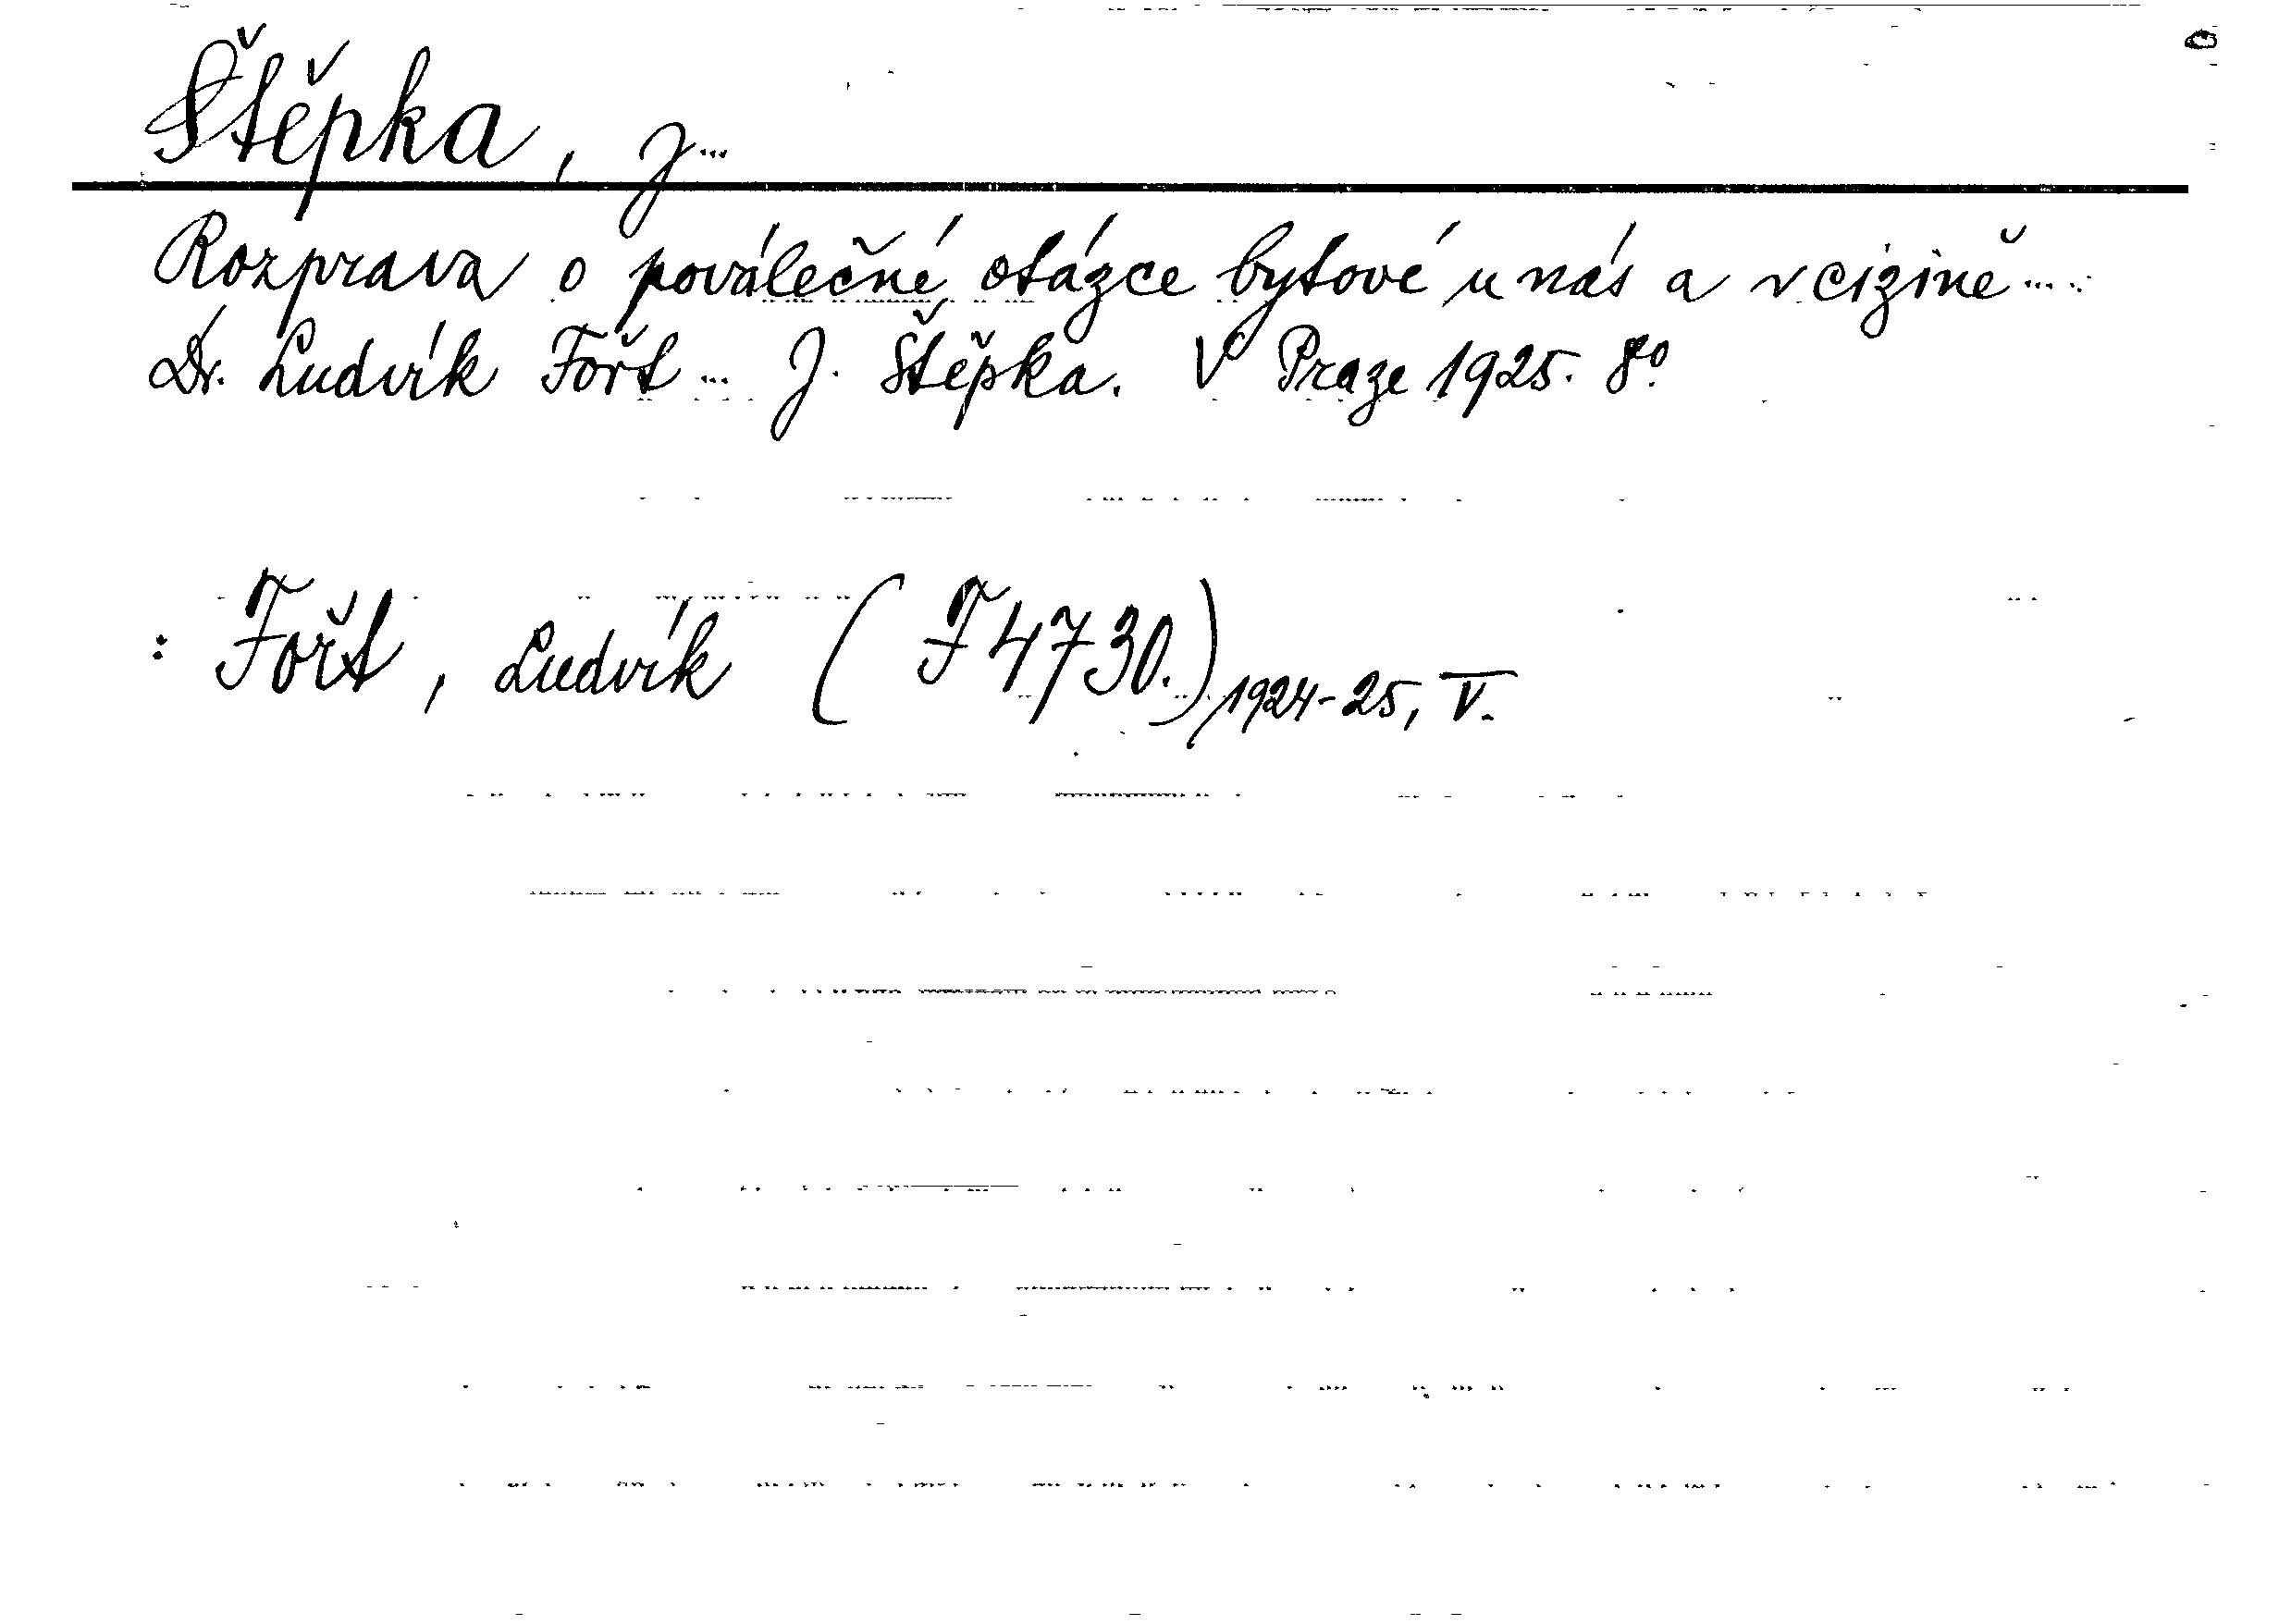 Štěpka, J...
Rozprava o poválečné otázce bytové u nás a v cizině....
Dr. Ludvík Fořt... J. Štěpka. V Praze 1925. 8º.
: Fořt, Ludvík (F 4730.) 1924-25, V.